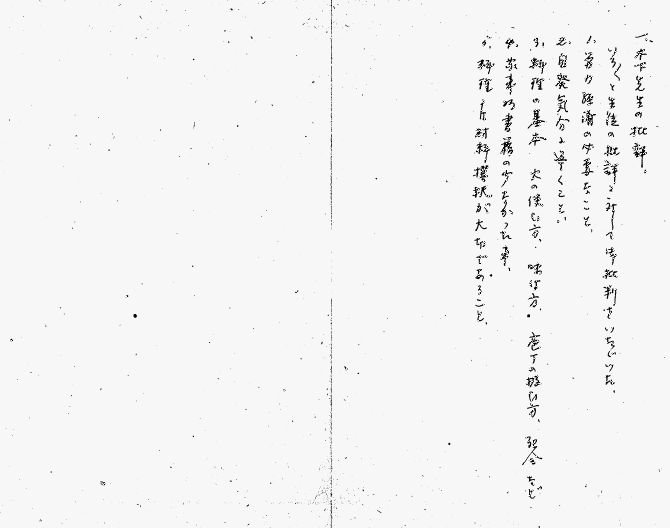 一、木下先生の批評。
いろ〱と生徒の批評に対して御批判をいたゞいた。
1. 労力経済の必要なこと、
2. 自発気分に導くこと、
3. 料理の基本 火の使ひ方、味付方、庖丁の持ち方、配合など
4. 家事的書籍の少なかった事。
5. 料理は材料撰択が大切であること。